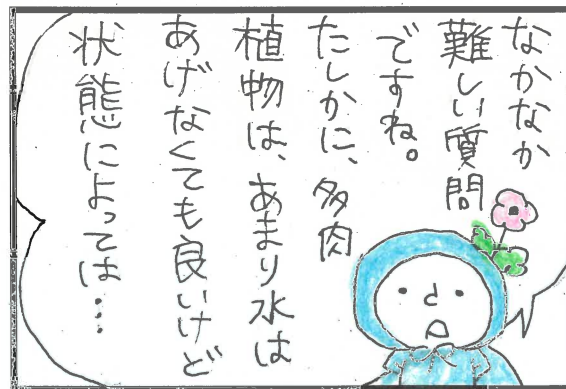 なかなか
難しい質問
ですね。
たしかに、多肉
植物は、あまり水は
あげなくても良いけど
状態によっては…